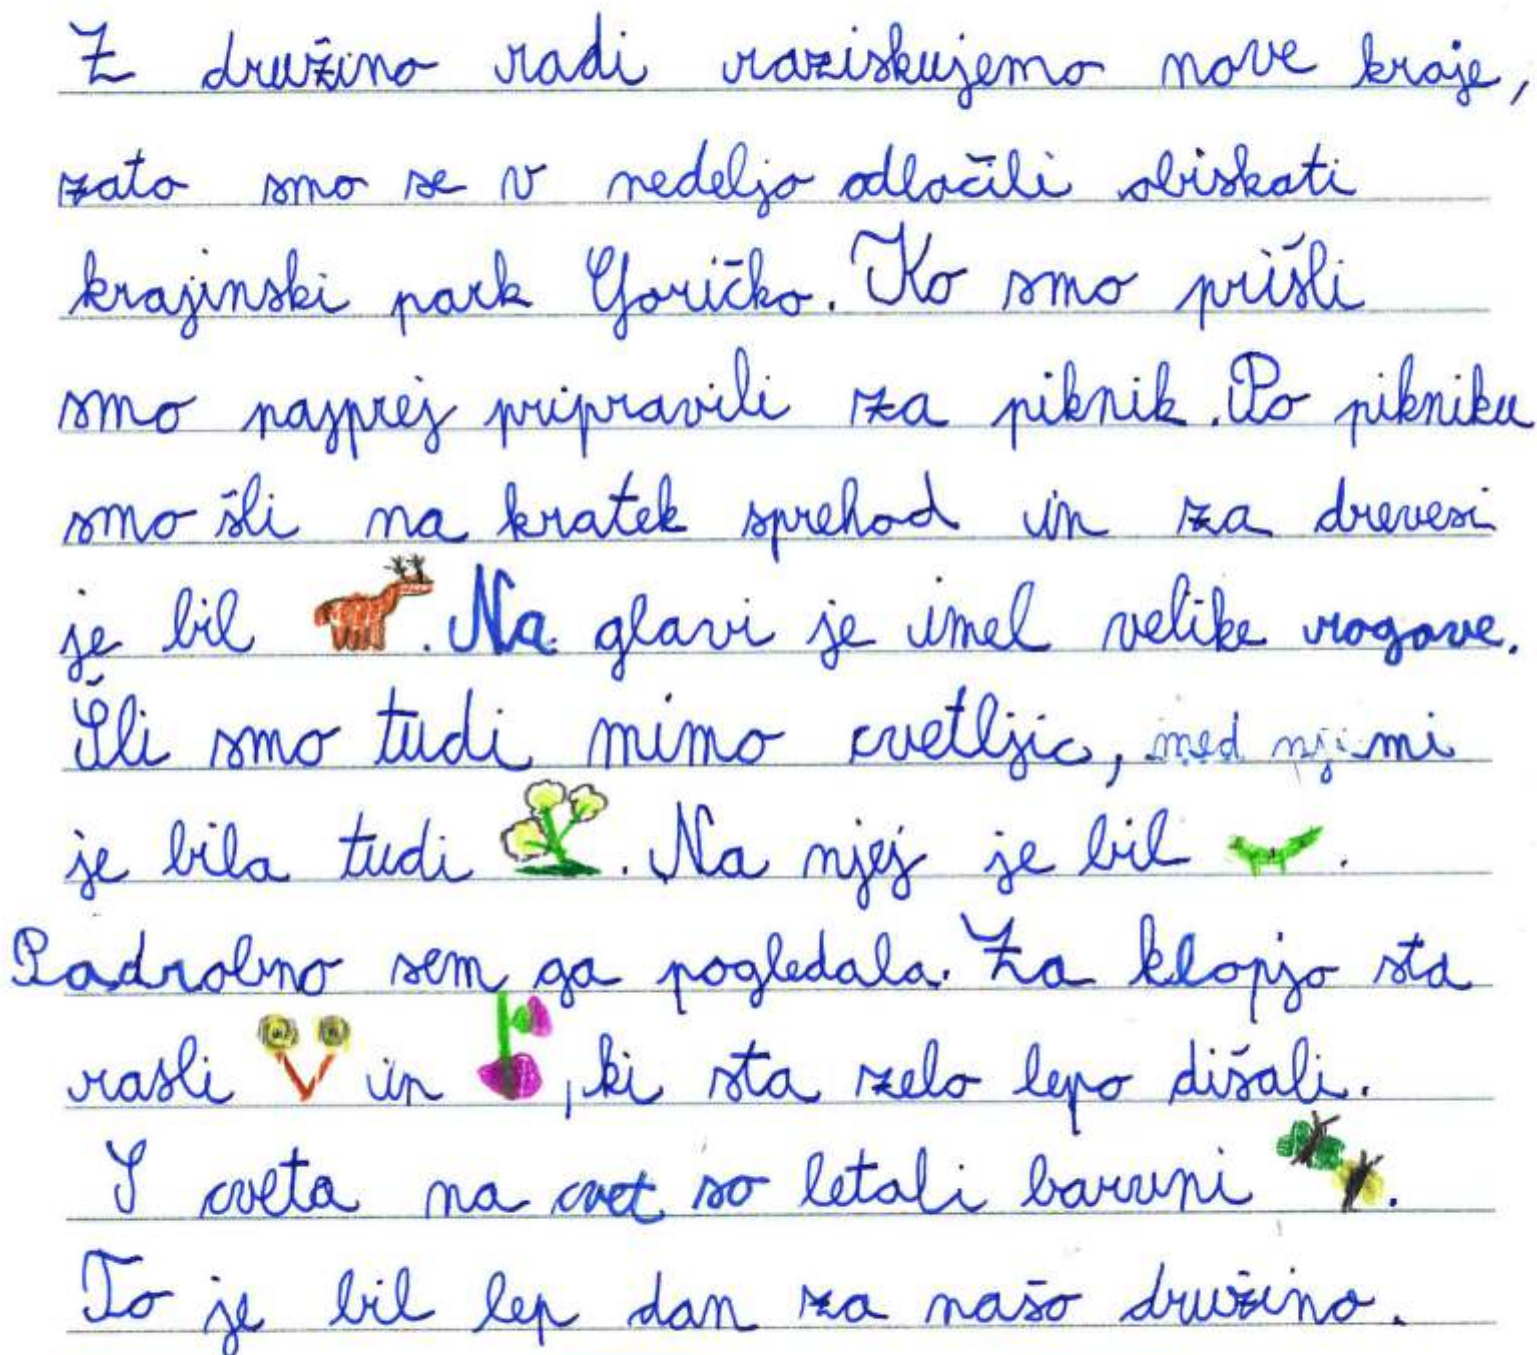 Z družino radi raziskujemo nove kraje,
zato smo se v nedeljo odločili obiskati
krajinski park Goričko. Ko smo prišli
smo najprej pripravili za piknik. Po pikniku
smo šli na kratek sprehod in za drevesi
je bil . Na glavi je imel velike rogove.
Šli smo tudi mimo cvetljic, med njimi
je bila tudi . Na njej je bil .
Podrobno sem ga pogledala. Za klopjo sta
rasli in , ki sta zelo lepo dišali.
S cveta na cvet so letali barvni .
To je bil lep dan za našo družino.